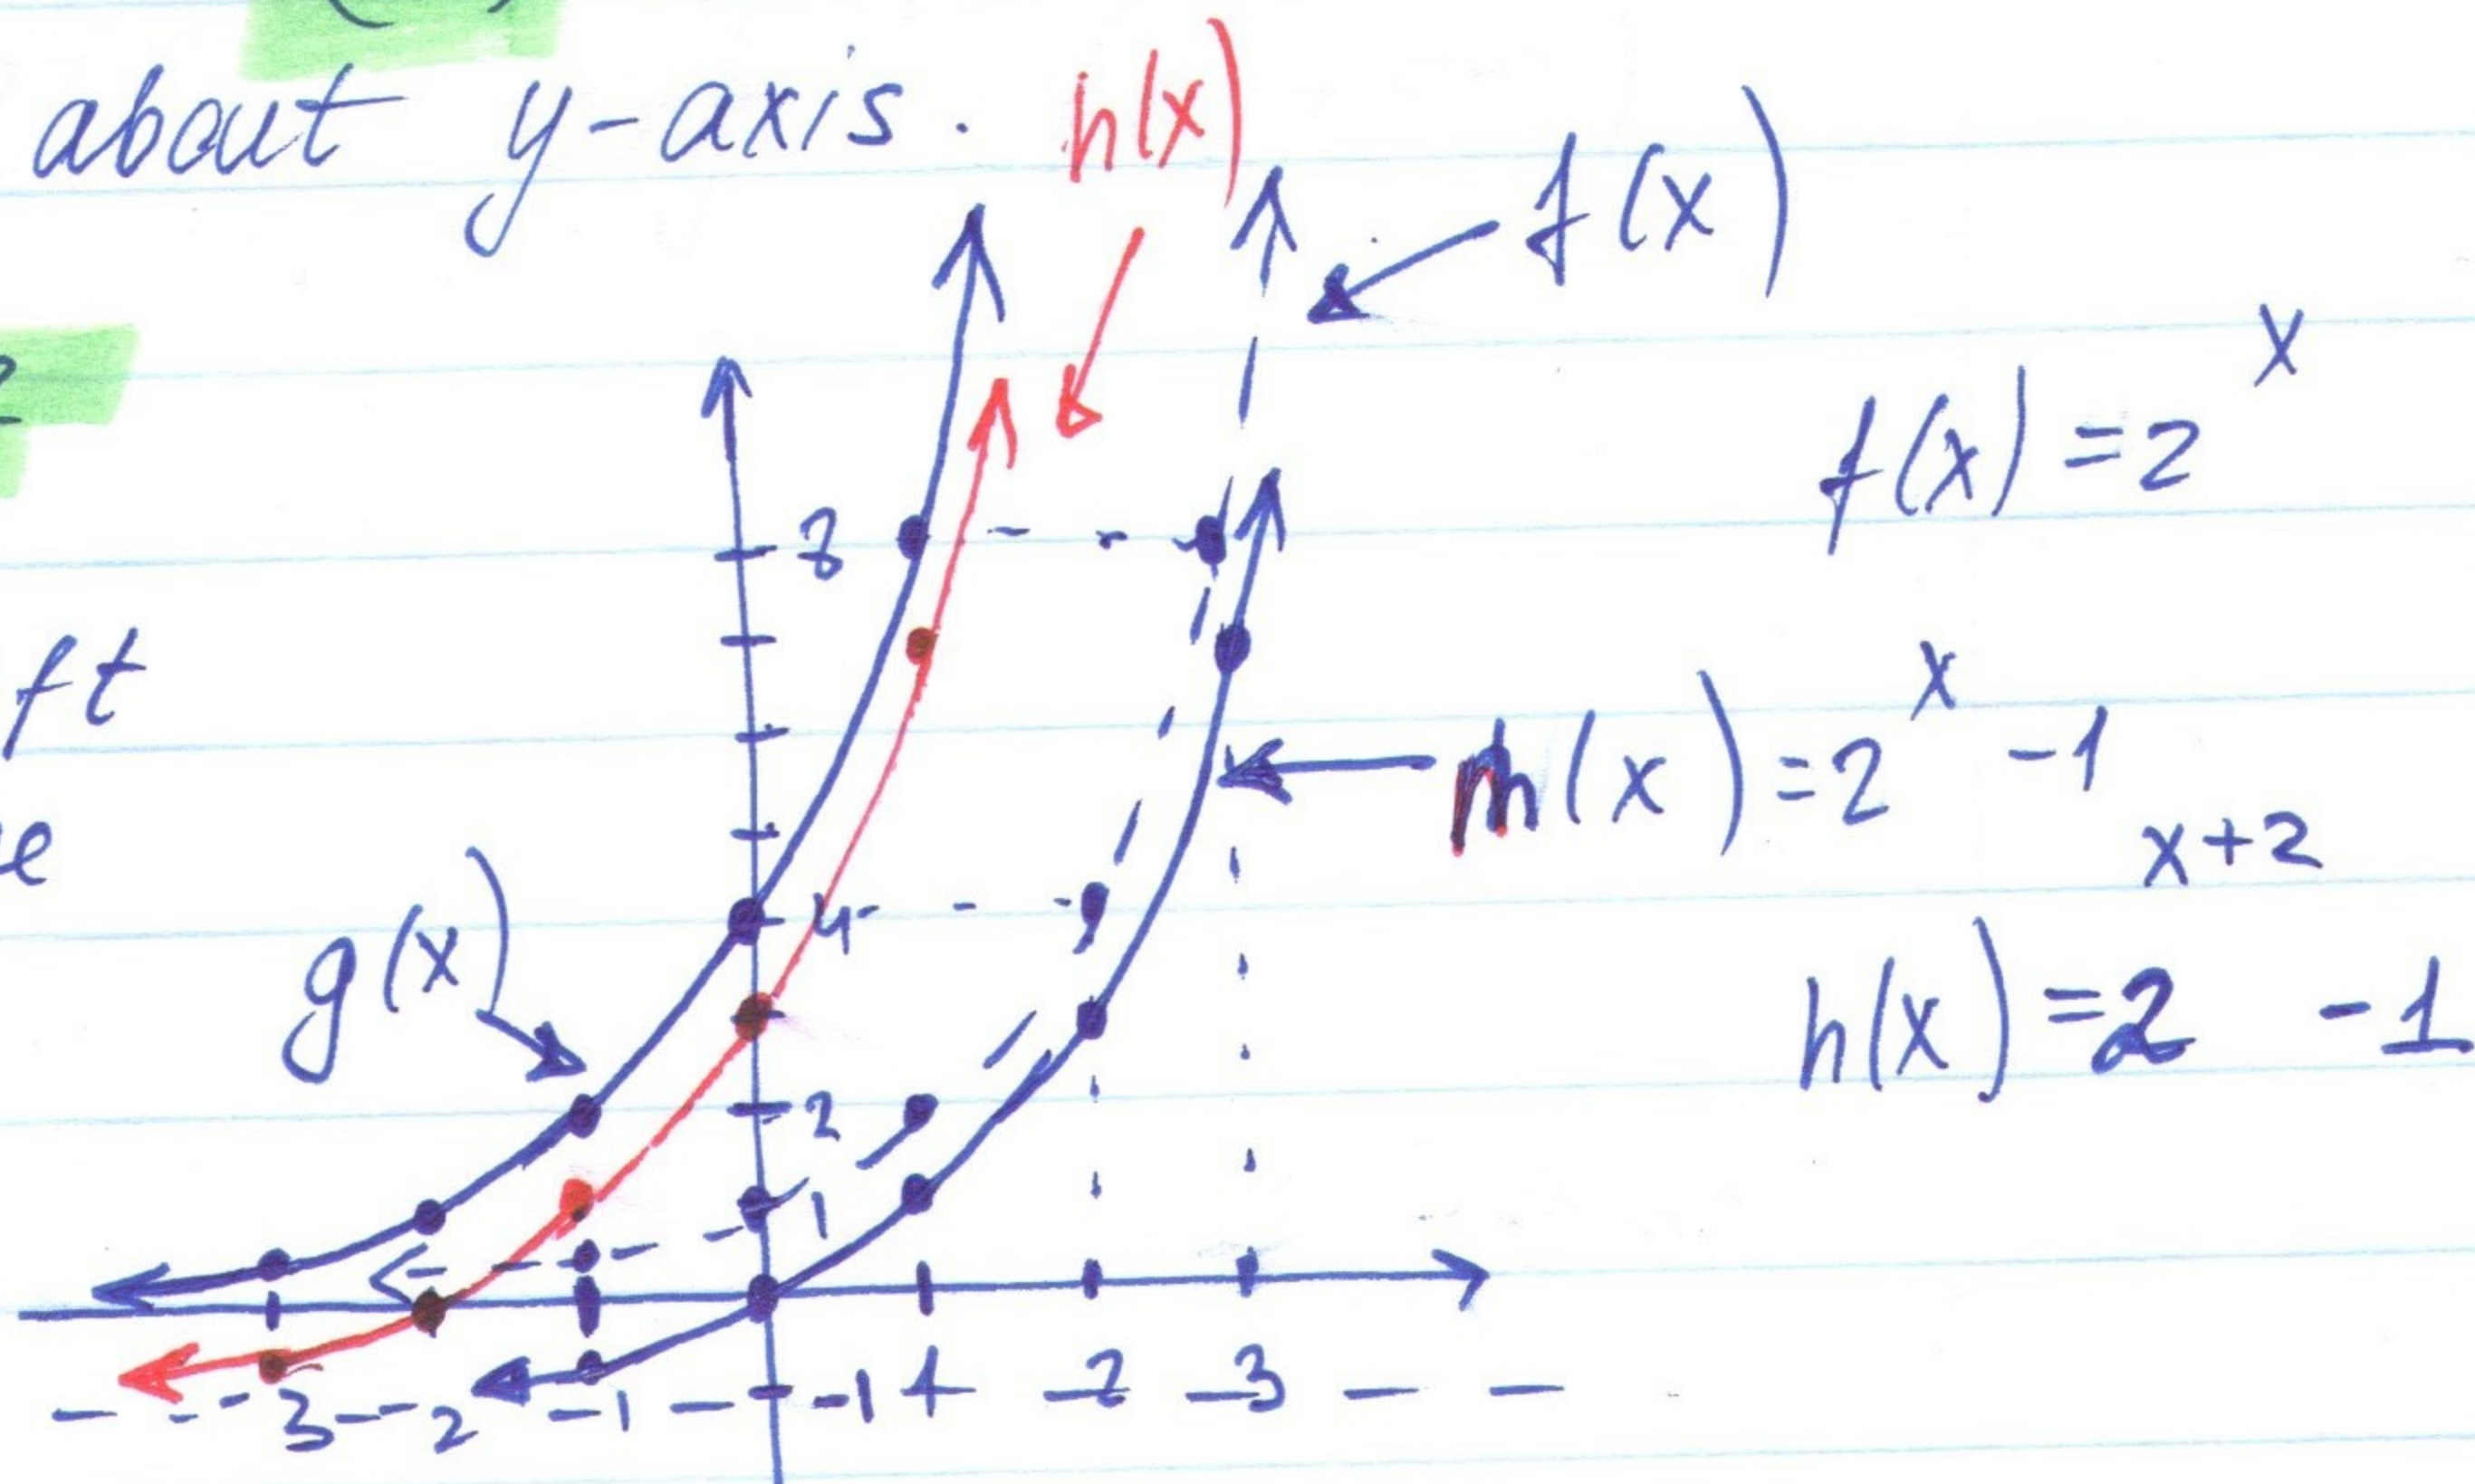 about y-axis. h(x)
f(x)
f(x) = 2^x
8
ft
m(x) = 2^x - 1
4
g(x)
h(x) = 2^(x+2) - 1
2
1
-3 -2 -1 -1 1 2 3